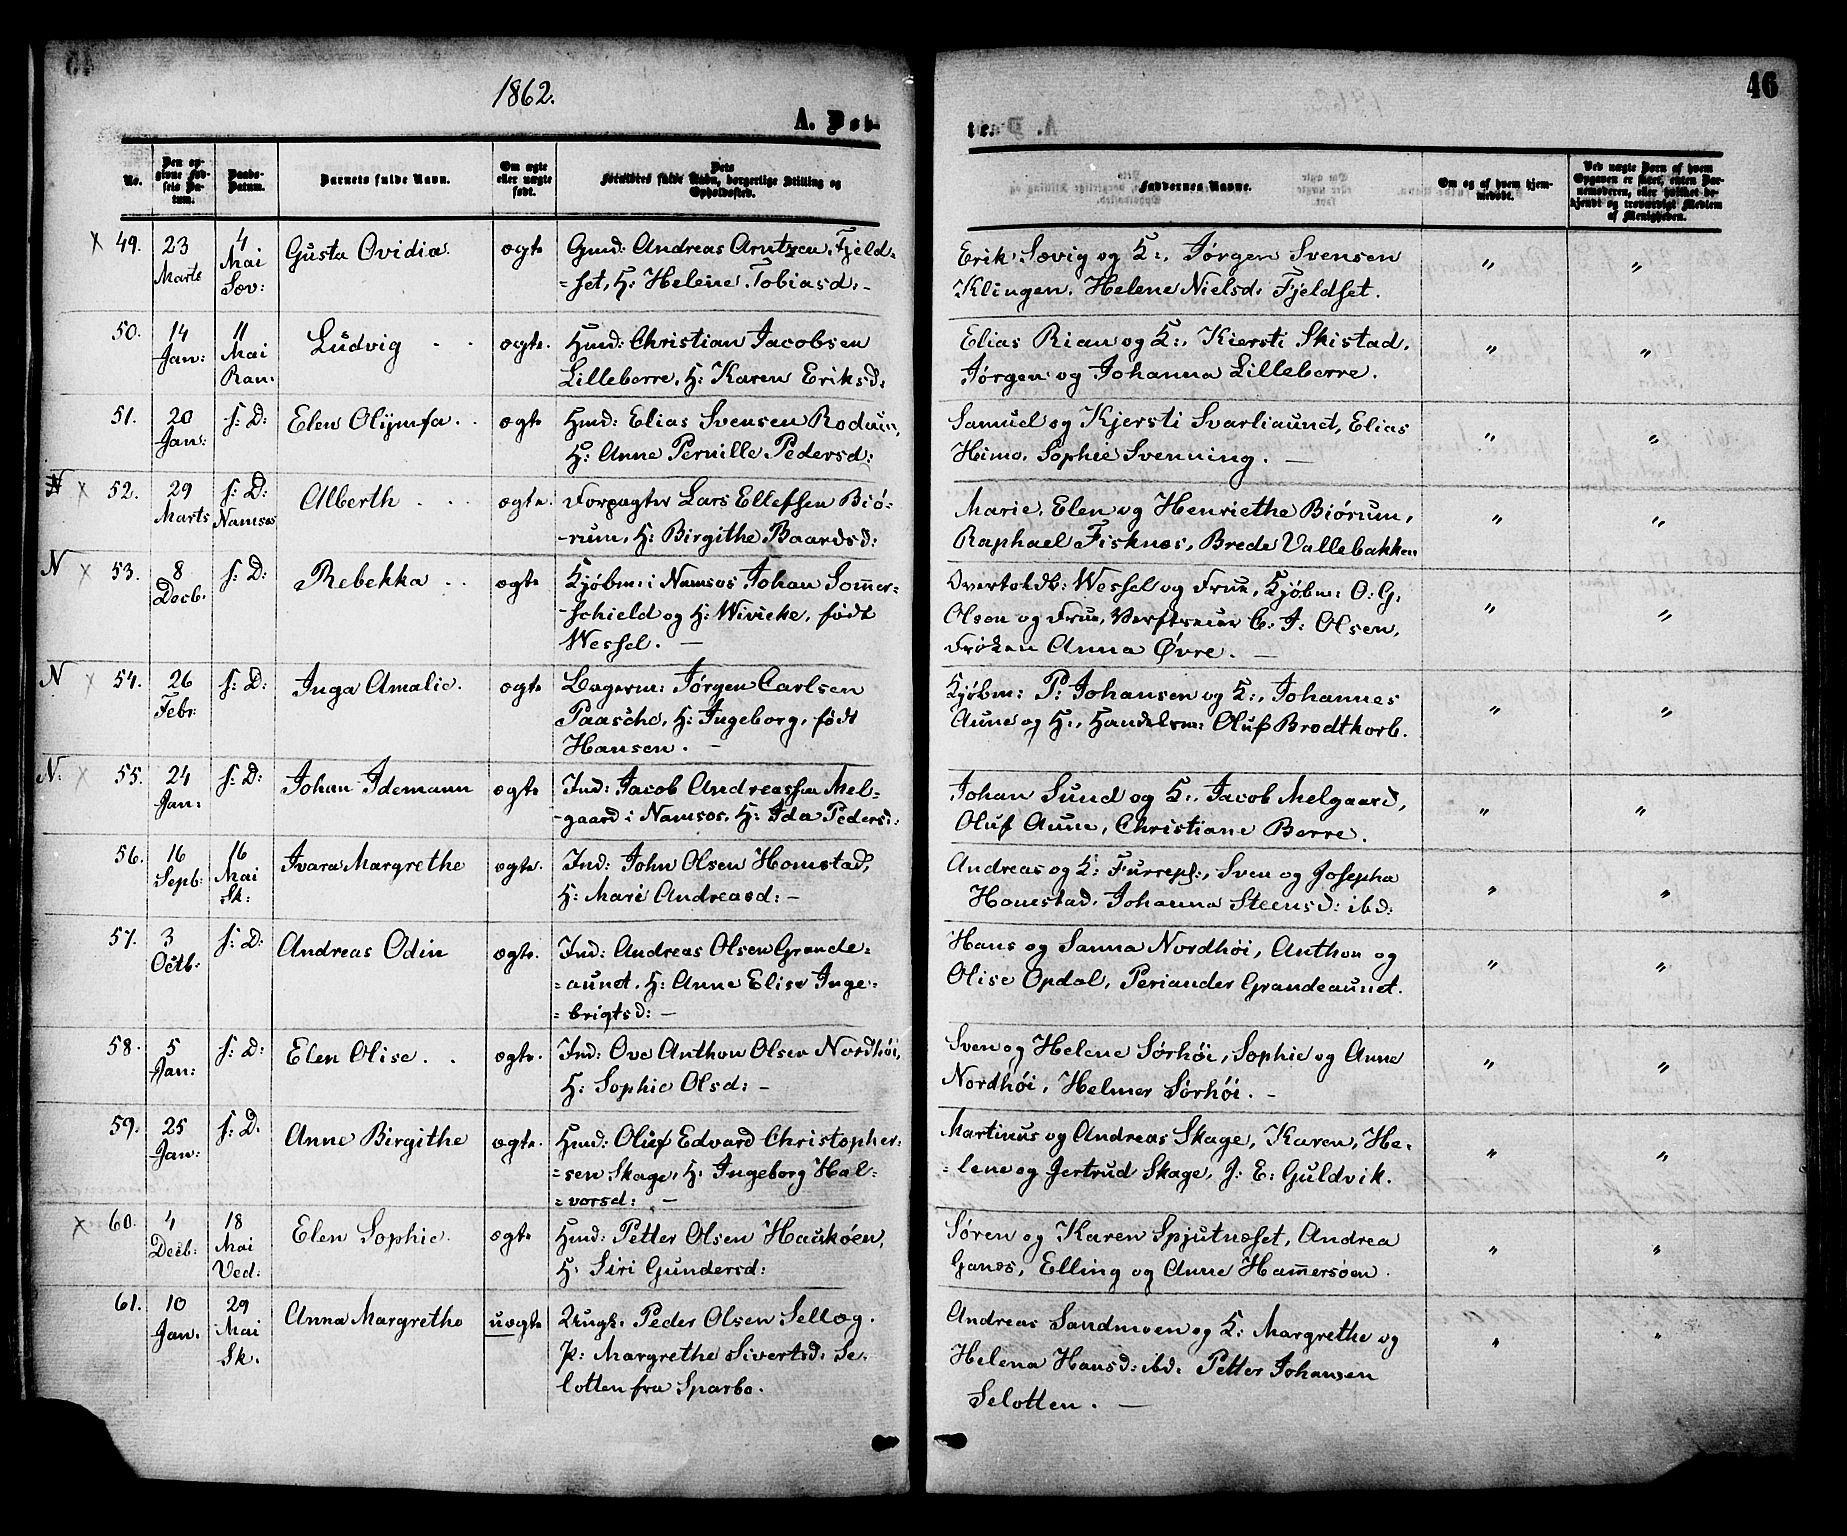 1862.
A. Døb-
No.
Den op-
givne Fød-
sels Da-
tum.
Daabs-
Datum.
Barnets fulde Navn.
Om ægte
eller uægte
født.
Dets
Forældres fulde Navn, borgerlige Stilling og
Opholdssted.
49. 23 Marts 4 Mai Sæv: Gusta Ovidia. ægte Gmd: Andreas Arntzen, Fjeld=
=set, H: Helene Tobiasd: -
50. 14 Jan: 11 Mai Ran. Ludvig ægte. Hmd: Christian Jacobsen
Lilleberre, H: Karen Eriksd:
51. 20 Jan: s: D: Elen Olijmfa ægte Hmd: Elias Svensen Rodum,
H: Anne Pernille Pedersd:
N x 52. 29 Marts s: D: Namsos Alberth ægte. Forpagter Lars Ellefsen Biø-
-rum, H: Birgithe Baardsd:
N x 53. 8 Decb. s: D: Rebekka ægte Kjøbm: i Namsos Johan Somer-
-schield og H: Wivicke, født
Wessel. -
N x 54. 26 Febr: s: D: Inga Amalie. ægte Bagerm: Jørgen Carlsen
Paasche, H: Ingeborg, født
Hansen. -
N: x 55. 24 Jan: s: D: Johan Idemann ægte Ind: Jacob Andreassen Mel-
-gaard i Namsos, H: Ida Peders:
56. 16 Septb: 16 Mai Sk: Ivara Margrethe ægte. Ind: John Olsen Homstad,
H: Mari Andreasd: -
57. 3 Octb: s: D: Andreas Odin ægte. Ind: Andreas Olsen Grande=
=aunet, H: Anne Elise Inge=
=brigtsd: -
58. 5 Jan: s: D: Elen Olise ægte. Ind: Ove Anthon Olsen Nordhøi,
H: Sophie Olsd: -
59. 25 Jan: s: D. Anne Birgithe ægte. Hmd: Oluf Edvard Christopher=
=sen Skage, H. Ingeborg Hal=
=vorsd: -
x 60. 4 Decb: 18 Mai Ved: Elen Sophie. ægte Hmd: Petter Olsen Haukøen,
H. Siri Gundersd:
61. 10 Jan. 29 Mai Sk. Anna Margrethe uægte Ungk. Peder Olsen Selløg.
p: Margrethe Sivertsd: Se-
lotten fra Sparbo.
46
te.
Faddernes Navne.
Om og af hvem hjem-
medøbt.
Ved uægte Børn af hvem
Opgaven er skeet, enten Bar-
nemoderen, eller hvilket be-
kjendt og troværdigt Medlem
af Menigheden.
Erik Sævig og K:, Jørgen Svensen " "
Klingen, Helene Nielsd: Fjeldset.
Elias Rian og K:, Kiersti Skistad, " "
Jørgen og Johanna Lilleberre.
Samuel og Kjersti Svarliaunet, Elias " "
Himo, Sophie Svenning. -
Marie, Elen og Henriethe Biørum, " "
Raphael Fisknæs, Brede Vallebakken
Overtoldb: Wessel og Frue, Kjøbm: O: G: " "
Olsen og Frue, C: J: Olsen,
Frøken Anna Øvre. -
Kjøbm: P: Johansen og K:, Johannes " "
Aune og H:, Handelsm: Oluf Brodtkorb.
Johan Sund og K:, Jacob Melgaard, " "
Oluf Aune, Christiane Berre.
Andreas og K: Furrepl:, Sven og Josepha " "
Homstad, Johanna Steensd: ibd:
Hans og Sanna Nordhøi, Anthon og " "
Olise Opdal, Periander Grandeaunet.
Sven og Helene Sørhøi, Sophie og Anne " "
Nordhøi, Helmer Sørhøi. -
Martinus og Andreas Skage, Karen, He= " "
=lene og Gjertrud Skage, J. E: Guldvik.
Søren og Karen Spjutnæset, Andrea " "
Ganæs, Elling og Anne Hamersøen.
Andreas Sandmoen og K: Margrethe og " "
Helena Hansd: ibd: Petter Johansen
Selotten. -